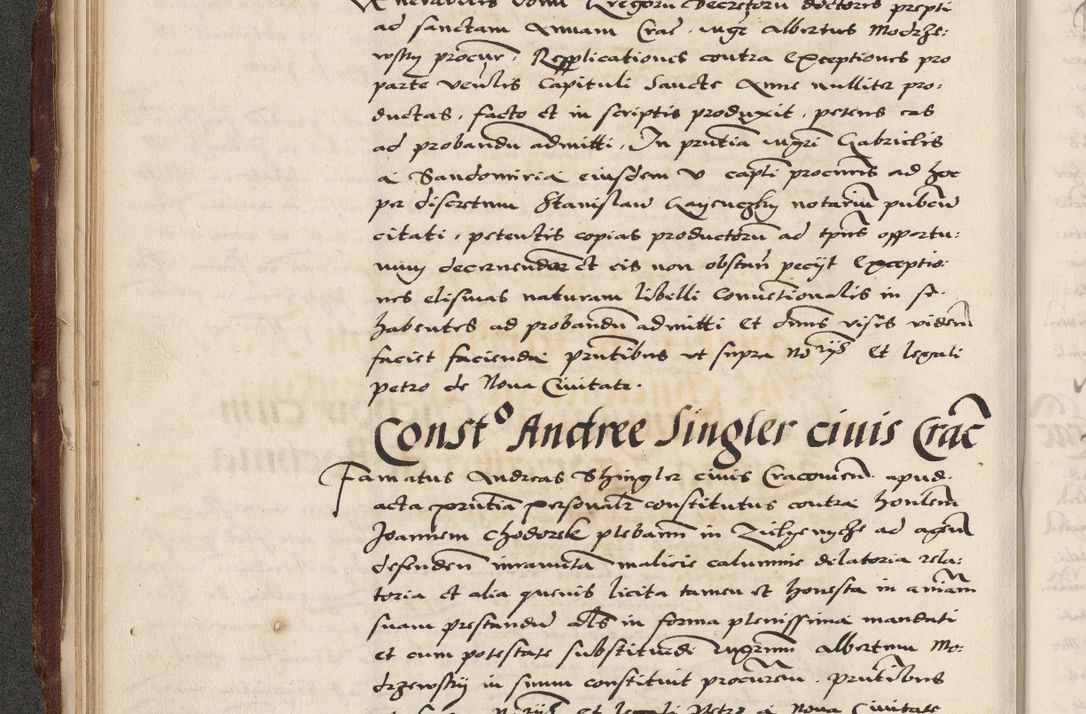 Venerabilis domi Gregorii decretoru doctoris prepti
ad sanctam Annam Crac. mgr Albertus Modrze:
wsky procur. Repplicationes contra Exceptiones pro
parte venlis Capituli Sancte Anne nulliter pro:
ductas, facto et in scriptis produxit, petens eas
ad probandu admitti, In pntia mgri Gabrielis
a Sandomiria eiusdem v capli procuris ad hoc
per discretum Stanislau notariu publicu
citati, petentis copias productoru ad tpus opportu:
num decernendas et eis non obstan petiit Exceptio:
nes elisivas naturam libelli Conventionalis in se
habentes ad probandu admitti Et dnus visis viden
faciet facienda pntibus ut supra notriis Et legali
petro de Nova Civitate.
Consto Andree Singler civis Crac
Famatus Andreas Shingler civis Cracovien. apud
acta pntia personalr constitutus contra honlem
Joannem Chodorek plebanu in ad agen
defenden malicie calumnie dilatoria rela:
toria et alia quevis licita tamen et honesta in aniam
suam prestandu als in forma plenissima mandati
et cum potestate substituendi mgrum Albertum Mo:
drzewsky in suum constituit procurem. pntibus
Et legali Petro a Nova Civitate